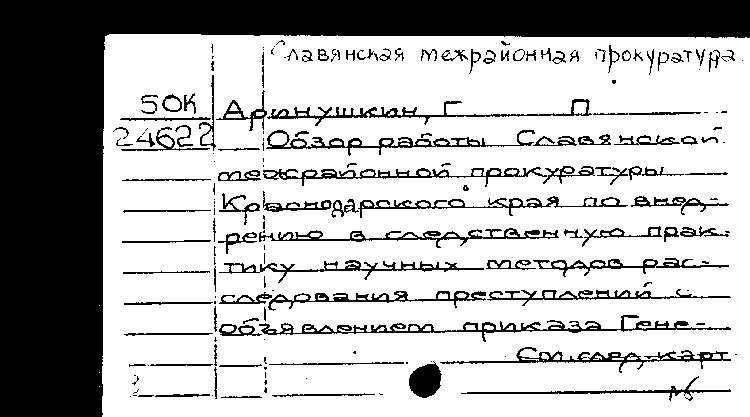 Славянская межрайонная прокуратура.
50К Аринушкин, Г П
24622 Обзор работы Славянской
межрайонной прокуратуры
Краснодарского края по внед-
рению в следственную прак-
тику научных методов рас-
следования преступлений с
объявлением приказа Гене-
См.след.карт